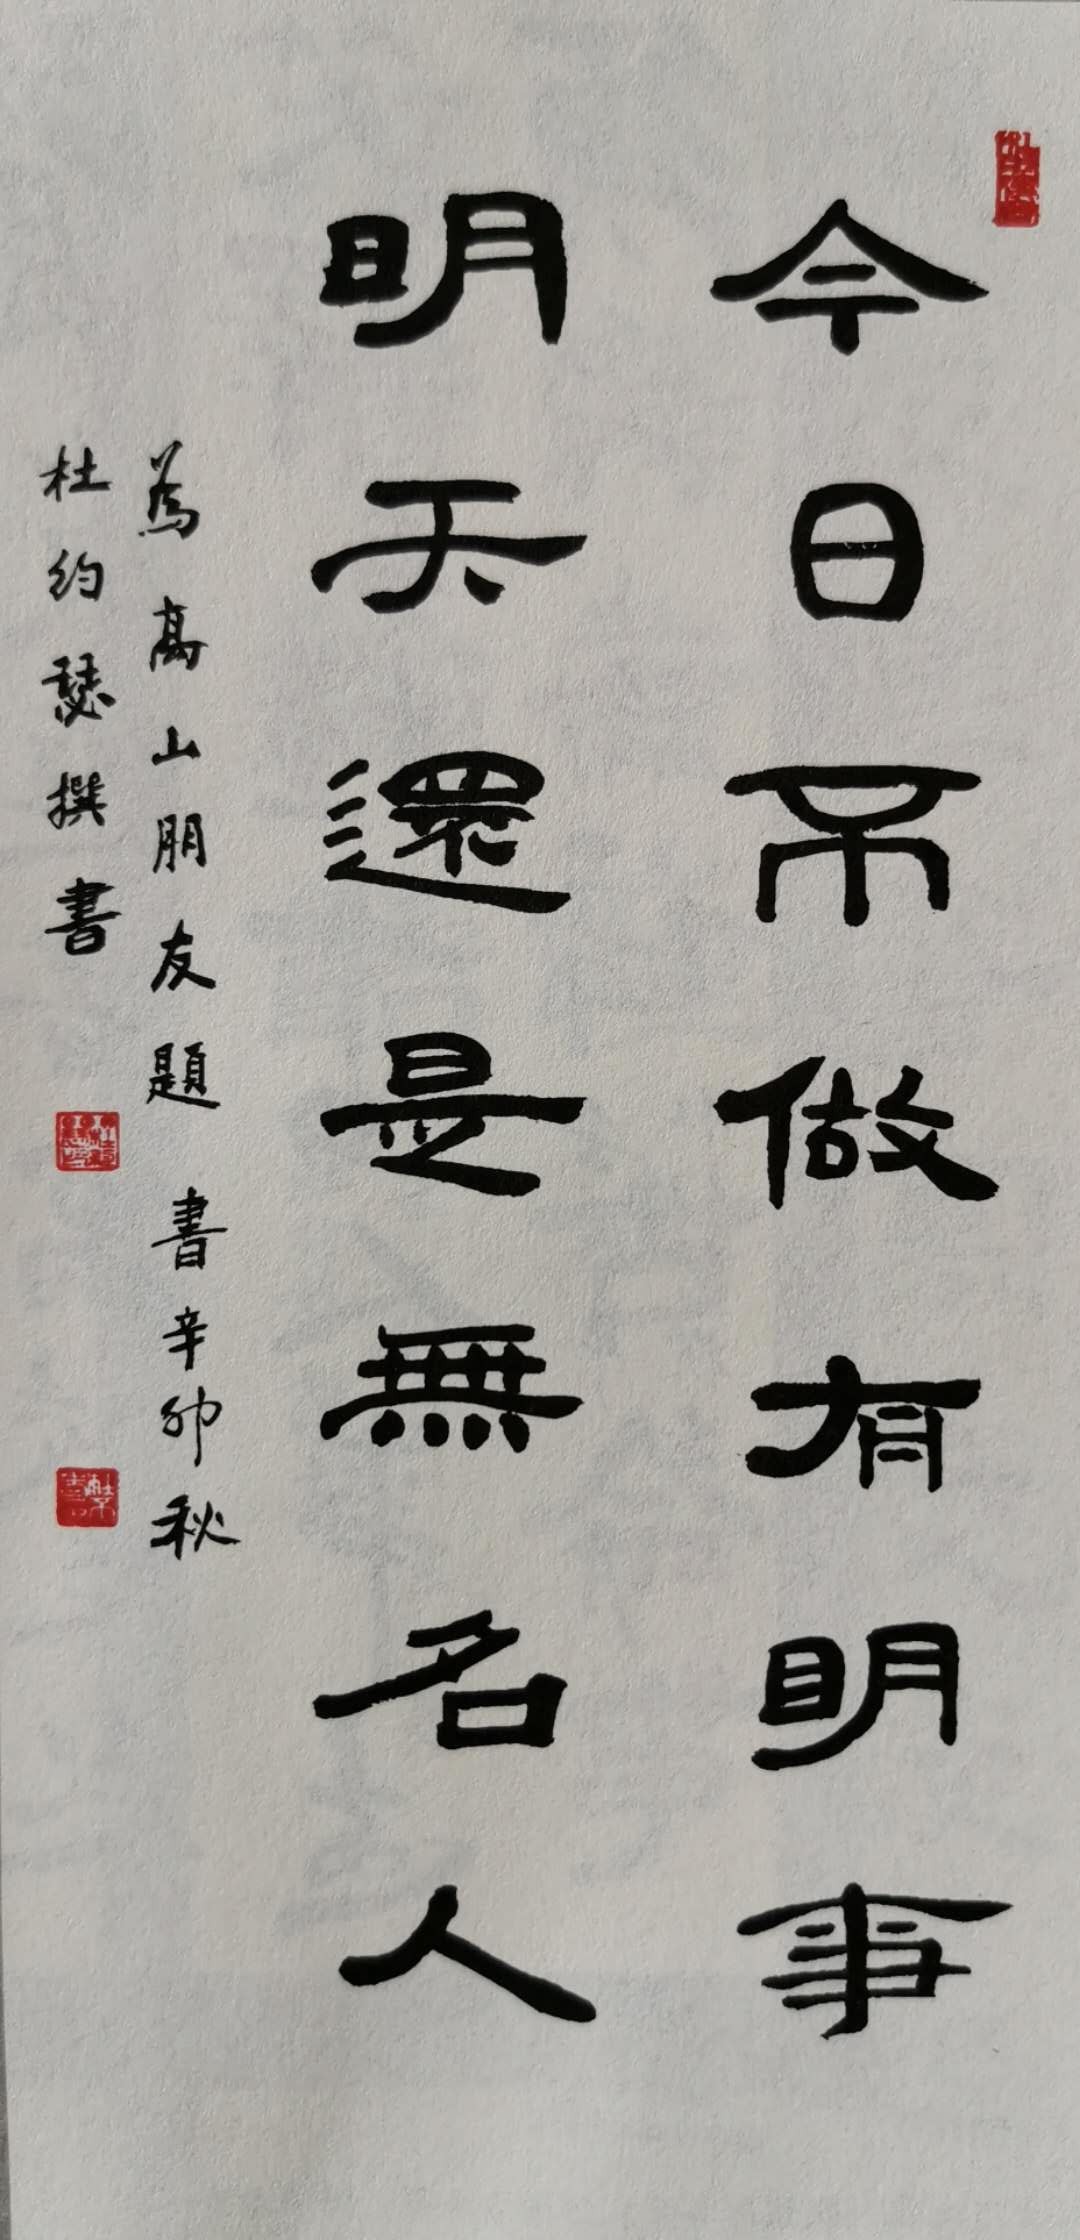 今日不做有明事
明天還是無名人
為高山朋友題 書辛卯秋
杜約瑟撰書